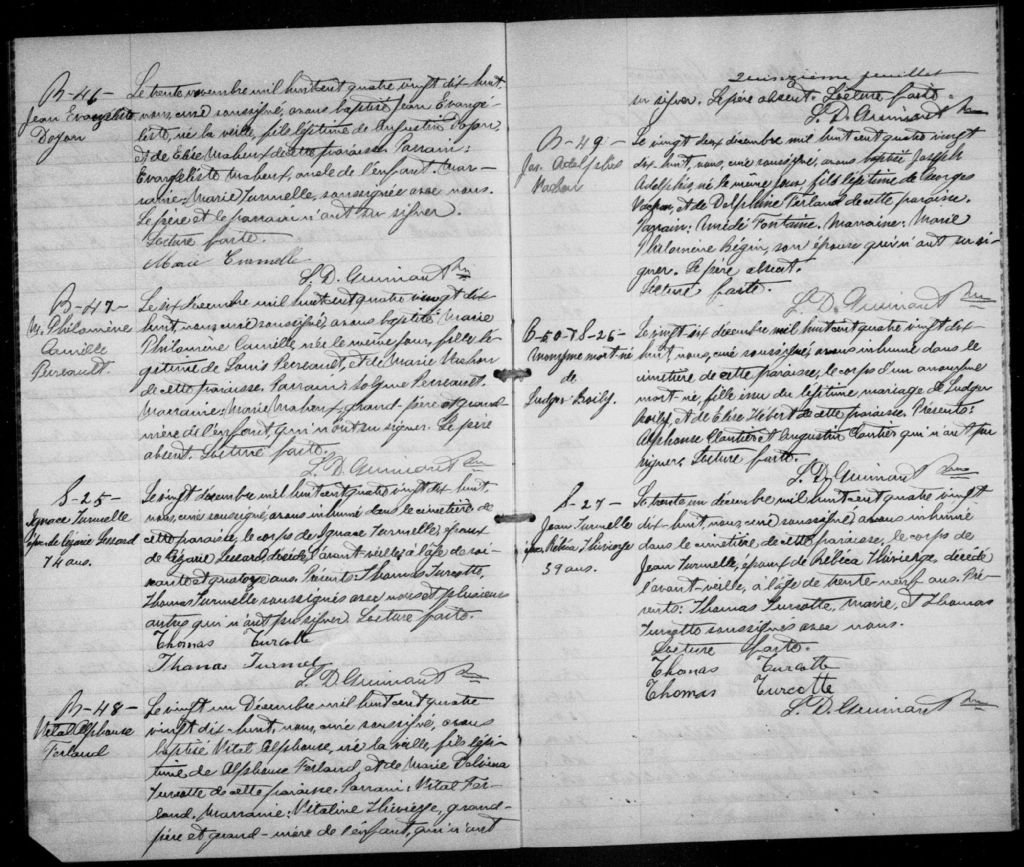 B-46-
Jean Evangeliste
Doyon
Le trente novembre mil huit cent quatre vingt dix-huit,
nous, curé soussigné, avons baptisé Jean Evangé-
liste, né la veille, fils légitime de Doyon,
et de Elise Maheux de cette paroisse. Parrain:
Evangeliste Maheux, oncle de l'enfant. Mar-
raine: Marie Turmelle, soussignée avec nous.
Le père et le parrain n'ont su signer.
Lecture faite.
Marie Turmelle
L. D. Guimont Ptre
B-47-
M. Philomène
Camille
Perreault
Le six décembre mil huit cent quatre vingt dix-
huit, nous, curé soussigné, avons baptisé Marie
Philomène Camille, née le même jour, fille lé-
gitime de Louis Perreault, et de Marie Vachon
de cette paroisse. Parrain: Perreault.
Marraine: Marie Maheux, grand-père et grand-
mère de l'enfant, qui n'ont su signer. Le père
absent. Lecture faite.
L. D. Guimont Ptre
S-25-
Ignace Turmelle
époux de Légarie Lessard
74 ans.
Le vingt décembre mil huit cent quatre vingt dix huit,
nous, curé soussigné, avons inhumé dans le cimetière de
cette paroisse, le corps de Ignace Turmelle, époux
de Légarie Lessard, décédé l'avant-veille, à l'âge de soi-
xante et quatorze ans. Présents: Thomas Turcotte,
Thomas Turmelle soussignés avec nous et plusieurs
autres qui n'ont pu signer. Lecture faite.
Thomas Turcotte
Thomas Turmel
L. D. Guimont Ptre
B-48-
Vital Alphonse
Ferland
Le vingt un Décembre mil huit cent quatre
vingt dix-huit, nous, curé soussigné, avons
baptisé Vital Alphonse, né la veille, fils légi-
time de Alphonse Ferland, et de Marie
Turcotte de cette paroisse. Parrain: Vital Fer-
land. Marraine: Vitaline Thivierge, grand-
père et grand-mère de l'enfant, qui n'ont
Quinzième feuillet
su signer. Le père absent. Lecture faite.
L. D. Guimont Ptre
B-49-
Jos. Adelphis
Vachon
Le vingt deux décembre mil huit cent quatre vingt
dix-huit, nous, curé soussigné, avons baptisé Joseph
Adelphis, né le même jour, fils légitime de Georges
Vachon, et de Delphine Ferland de cette paroisse.
Parrain: Amédé Fontaine. Marraine: Marie
Philomène Bégin, son épouse qui n'ont su si-
gner. Le père absent.
Lecture faite.
L. D. Guimont Ptre
B-50-&S-26-
Anonyme mort-né
de
Ludger Boily.
Le vingt six décembre mil huit cent quatre vingt dix-
huit nous, curé soussigné, avons inhumé dans le
cimetière de cette paroisse, le corps d'un anonyme
mort-né, fille issu du légitime mariage de Ludger
Boily, et de Elise Hébert de cette paroisse. Présents:
Alphonse Cloutier et Augustin Cloutier qui n'ont pu
signer. Lecture faite.
L. D. Guimont Ptre
S-27-
Jean Turmelle
époux Rebéca Thivierge
39 ans.
Le trente un décembre mil huit-cent quatre vingt
dix-huit, nous, curé soussigné, avons inhumé
dans le cimetière de cette paroisse, le corps de
Jean Turmelle, époux de Rebéca Thivierge, décédé
l'avant-veille, à l'âge de trente-neuf ans. Pré-
sents: Thomas Turcotte, Marie, et Thomas
Turcotte soussignés avec nous.
Lecture faite.
Thomas Turcotte
Thomas Turcotte
L. D. Guimont Ptre